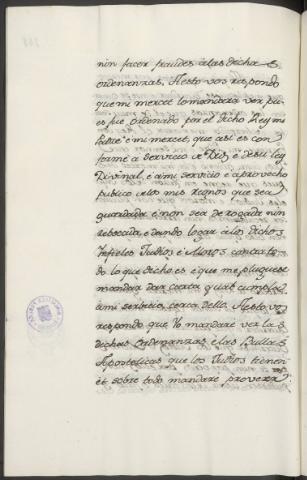 nin facer fraudes à las dicha S
ordenanzas. A esto vos respondo
que mi mercet lo mandará ver, pu-
es fue ordenado por el dicho Rey mi
Padre è mi mercet, que asi es con
forme à servicio de Dios, è de su ley
Divinal, è à mi servicio è aprovecho
publico de los mis Regnos que sea
guardada è non sea derogada nin
rebocada è dando logar à los dichos
Infieles Judios è Moros canta to
do lo que dicho es è que me pluguiese
mandar dar carta qual cumpla
à mi servicio, cerca dello. A esto vos
respondo que Yo mandaré ver la S
dichas Ordenanzas è las Bulla S
Apostolicas que los Judios tienen
è sobre todo mandaré proveer